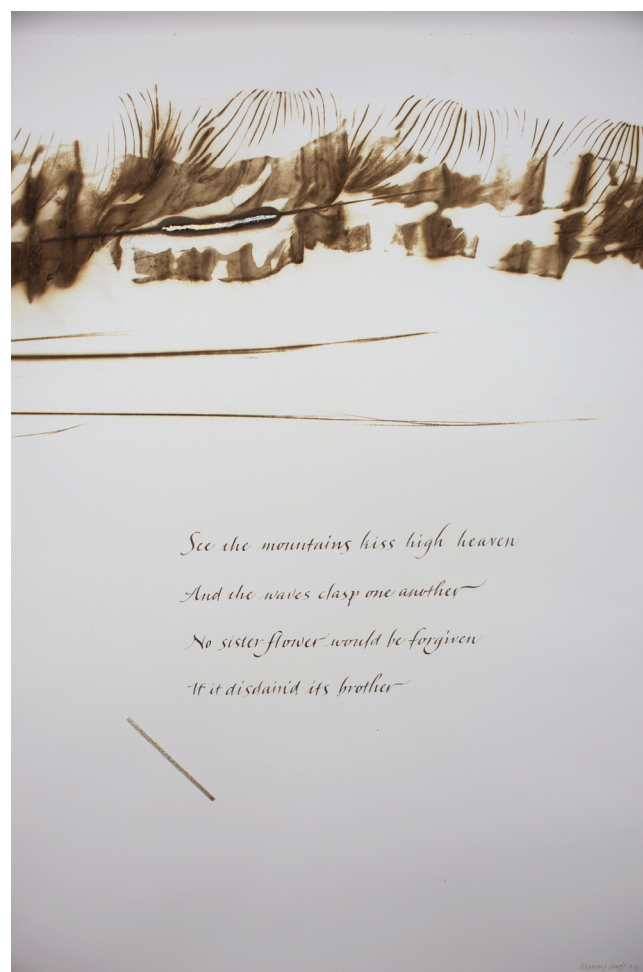 See the mountains kiss high heaven
And the waves clasp one another
No sister flower would be forgiven
If it disdain'd its brother